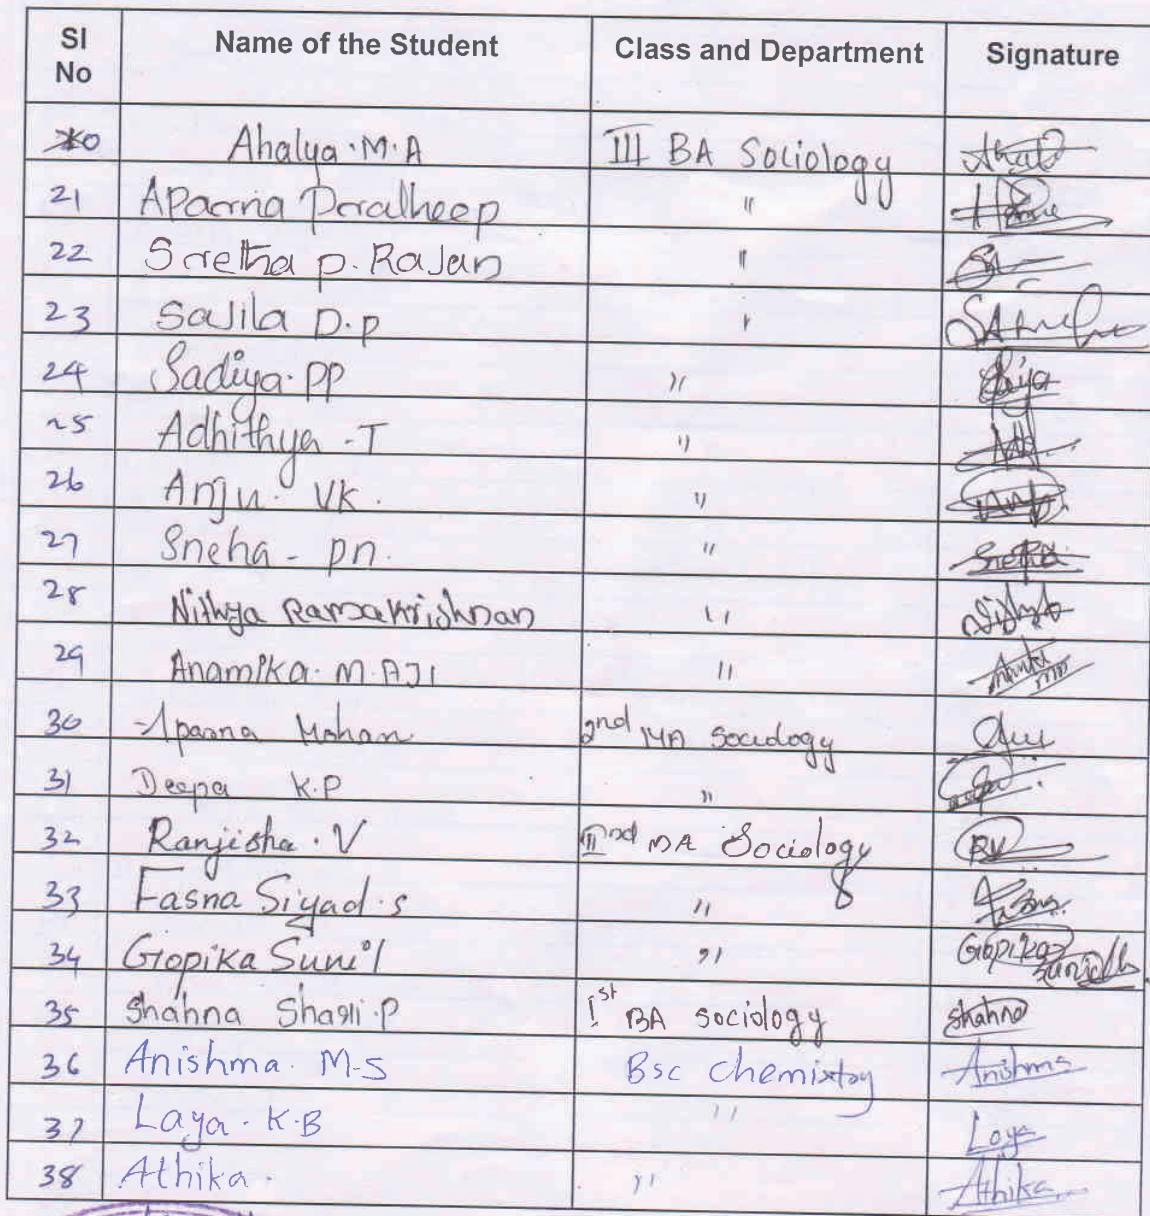 Sl No Name of the Student Class and Department Signature
20 Ahalya.M.A III BA Sociology
21 Aparna Pradheep "
22 Sretha P. Rajan "
23 Sajila D.P "
24 Sadiya. PP "
25 Adhithya -T "
26 Anju. VK. "
27 Sneha - pn. " Sneha
28 Nithya Ramakrishnan "
29 Anamika. M.AJI "
30 Aparna Mohan 2nd MA Sociology
31 Deepa K.P "
32 Ranjisha. V IInd MA Sociology RV
33 Fasna Siyad.s "
34 Gopika Sunil " Gopika Sunil
35 Shahna Shaji.P 1st BA sociology Shahna
36 Anishma. M-S Bsc chemistry Anishma
37 Laya. K.B " Laya
38 Athika. " Athika